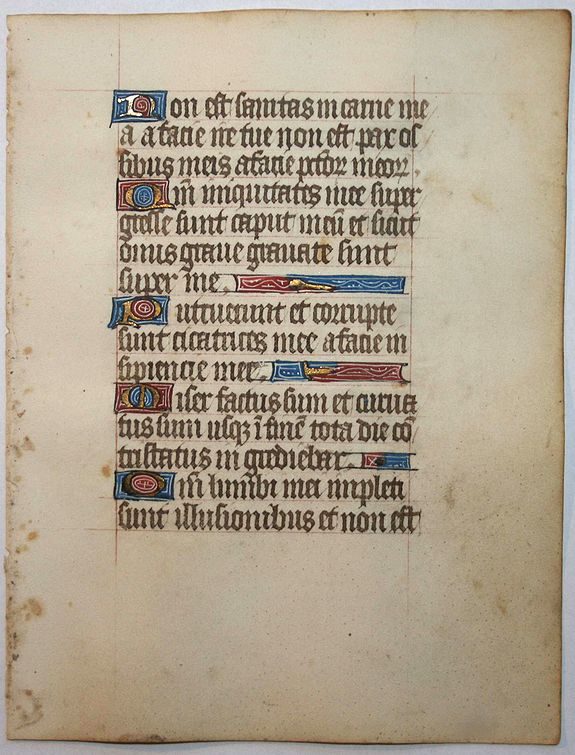 Non est sanitas in carne me
a a facie ire tue non est pax os
sibus meis a facie pctoꝝ meoꝝ.
Qm̄ iniquitates mee super
gresse sunt caput meū et sicut
onus graue grauate sunt
super me.
Putruerunt et corrupte
sunt cicatrices mee a facie in
sipiencie mee.
Miser factus sum et curua
tus sum usqꝫ ī finē tota die cō
tristatus in grediebar.
Qm̄ lumbi mei impleti
sunt illusionibus et non est